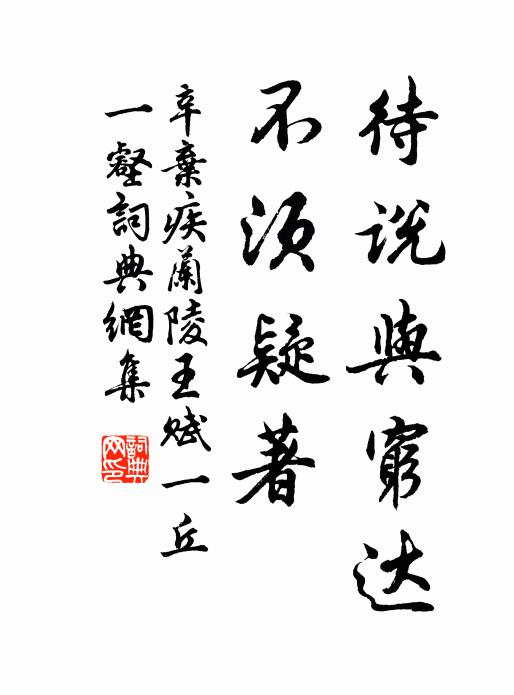 待说與窮达
不须疑著
辛棄疾蘭陵王賦一丘
一壑詞典網集
詞典
网印